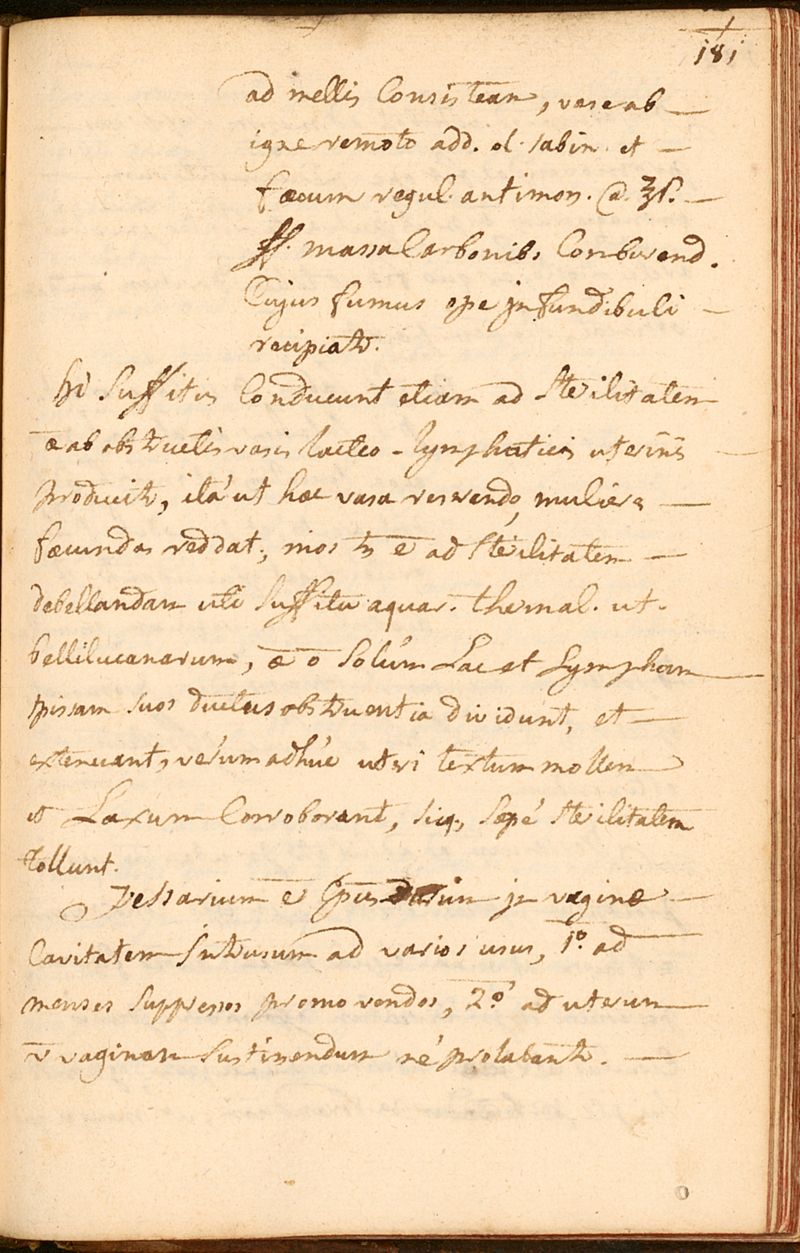 181
ad mellis Consistean, vase ab
igne remoto add. ol. sabin. et
fæcum regul. antimon. @ ʒſ.
ff. massa Carbonibs Comburend.
Cujus fumus ope jnfundibuli
recipiatr.
hi Suffitus Conducunt etiam ad Sterilitatem
æ ab obstructis vasis lacteo-lymphaticis uterinis
producitr, ita ut hæc vasa reserendo, mulieres
fæcundas reddat; mos ē ad Sterilitatem
debellandam uti Suffitu aquar. thermal. ut.
bellilucanarum, æ o Solùm Lac et Lympham
spissam suos ductus obstruentia dividunt, et
extenuant, verùm adhùc uteri textum mollem
et Laxum Corroborant, sicq., sæpè Sterilitatem
tollunt.
Pessarium ē Cpus jn vaginæ
Cavitatem Intrusum ad varios usus, 1º. ad
menses Suppressos promovendos, 2º ad uterum
v vaginam Sustinendum nè prolabantr.